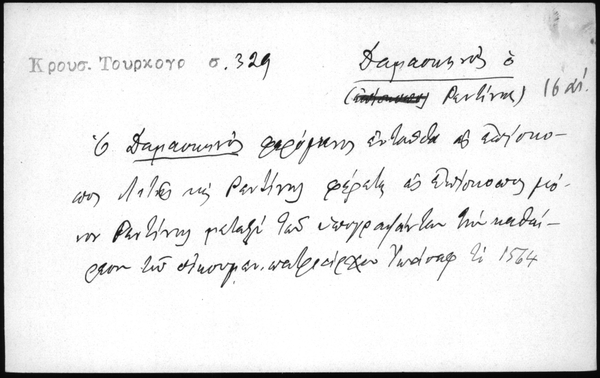 Κρουσ. Τουρκογρ σ. 329
Δαμασκηνὸς ὁ
(ἐπίσκοπος) Ρεντίνης) 16 αἰ.
Ὁ Δαμασκηνὸς φερόμενος ἐνταῦθα ὡς ἐπίσκο-
πος Λιτῆς καὶ Ρεντίνης φέρεται ὡς ἐπίσκοπος μό-
νον Ρεντίνης μεταξὺ τῶν ὑπογραψάντων τὴν καθαί-
ρεσιν τοῦ οἰκουμεν. πατριάρχου Ἰωάσαφ τῷ 1564